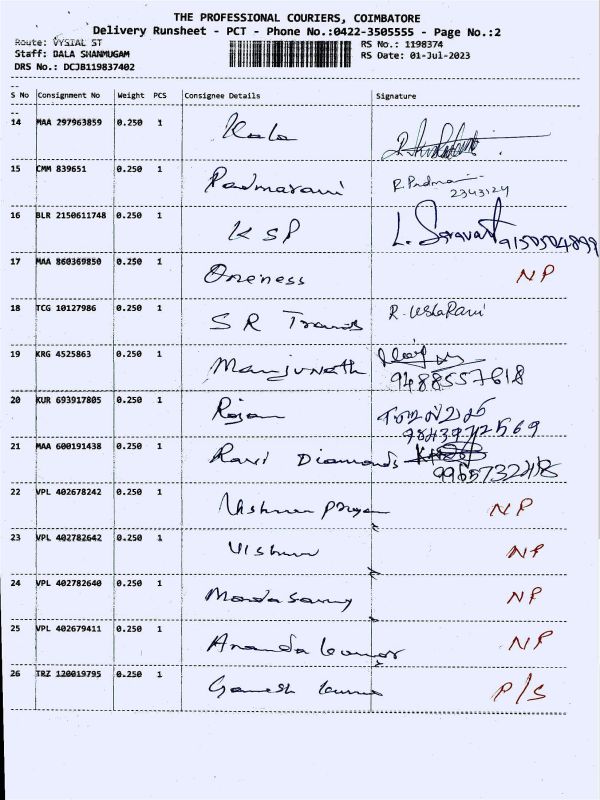 THE PROFESSIONAL COURIERS, COIMBATORE
Delivery Runsheet - PCT - Phone No.:0422-3505555 - Page No.:2
Route: VYSIAL ST
RS No.: 1198374
Staff: BALA SHANMUGAM
RS Date: 01-Jul-2023
DRS No.: DCJB119837402
S No Consignment No Weight PCS Consignee Details Signature
14 MAA 297963859 0.250 1 Kala
15 CMM 839651 0.250 1 Padmarani R. Padma
2343124
16 BLR 2150611748 0.250 1 KSP L. Saravan 9150504899
17 MAA 860369850 0.250 1 Oneness NP
18 TCG 10127986 0.250 1 SR Trands R. UshaRani
19 KRG 4525863 0.250 1 Manjunath
9488557618
20 KUR 693917805 0.250 1 Rajan
9843972569
21 MAA 600191438 0.250 1 Ravi Diamonds
9965732418
22 VPL 402678242 0.250 1 Vishnu priya NP
23 VPL 402782642 0.250 1 Vishnu NP
24 VPL 402782640 0.250 1 NP
25 VPL 402679411 0.250 1 Ananda kumar NP
26 TRZ 120019795 0.250 1 Ganesh kumar P/S